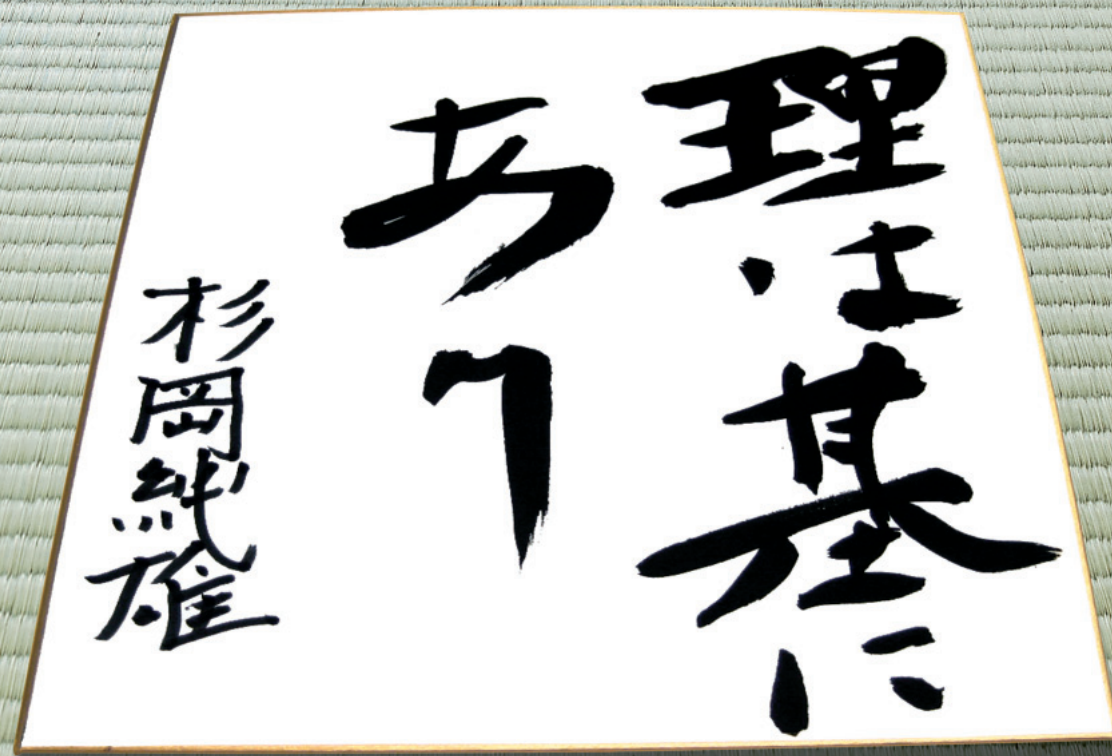 理は基に
あり
杉岡絨雄